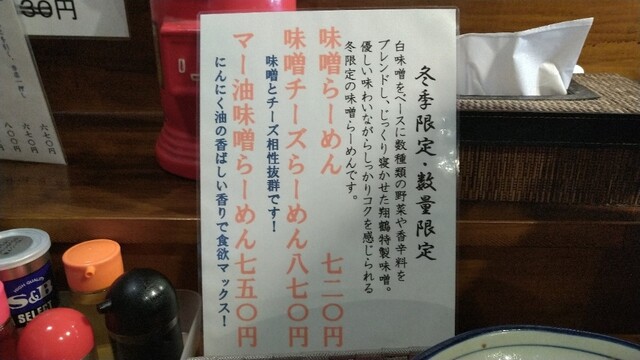 冬季限定・数量限定
白味噌をベースに数種類の野菜や香辛料を
ブレンドし、じっくり寝かせた翔鶴特製味噌。
優しい味わいながらしっかりコクを感じられる
冬限定の味噌らーめんです。
味噌らーめん 七二〇円
味噌チーズらーめん八七〇円
味噌とチーズ相性抜群です!
マー油味噌らーめん七五〇円
にんにく油の香ばしい香りで食欲マックス!
30円
六七〇円
六七〇円
八〇〇円
S&B
SELECT